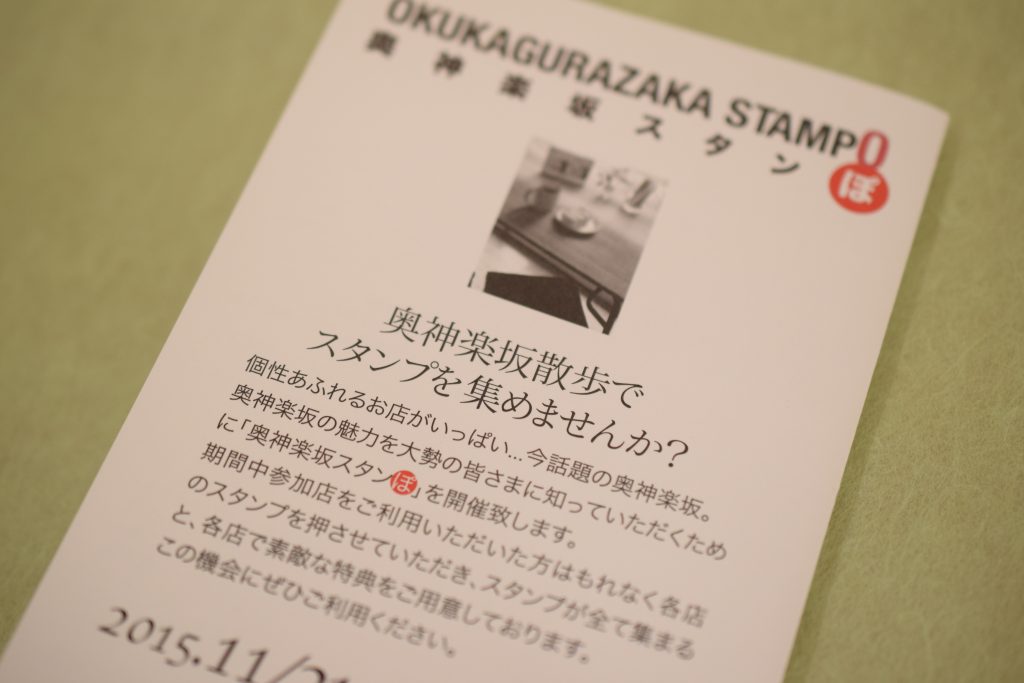 OKUKAGURAZAKA STAMPO
奥神楽坂スタンぽ
奥神楽坂散歩で
スタンプを集めませんか？
個性あふれるお店がいっぱい…今話題の奥神楽坂。
奥神楽坂の魅力を大勢の皆さまに知っていただくため
に「奥神楽坂スタンぽ」を開催致します。
期間中参加店をご利用いただいた方はもれなく各店
のスタンプを押させていただき、スタンプが全て集まる
と、各店で素敵な特典をご用意しております。
この機会にぜひご利用ください。
2015.11/